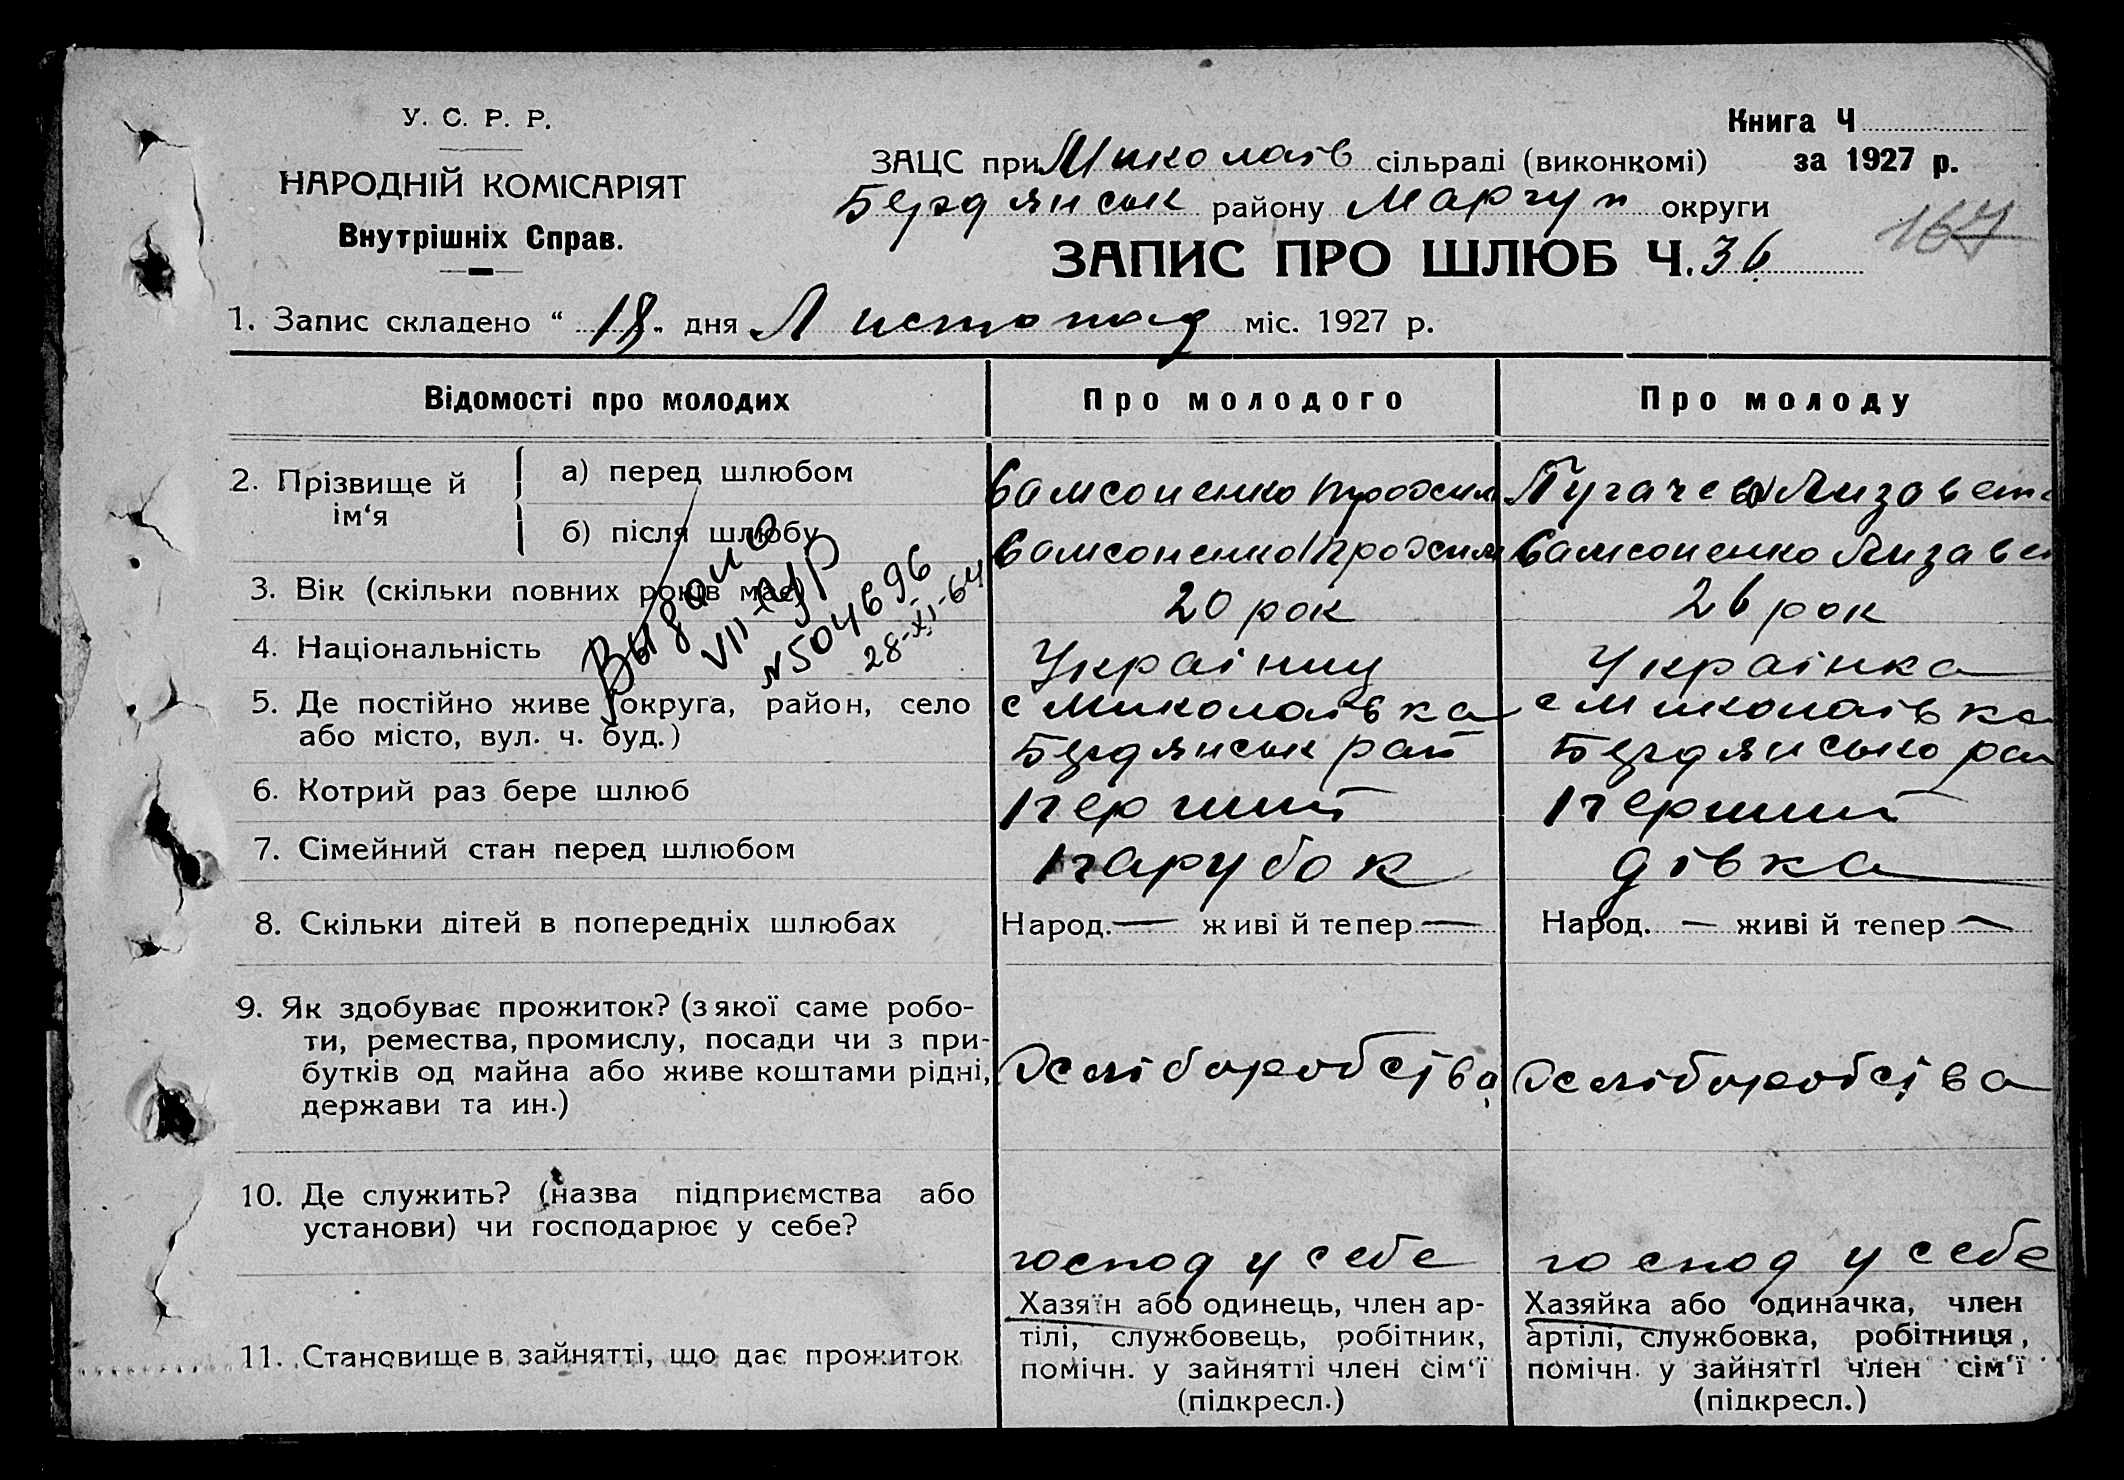 У. С. Р. Р.
НАРОДНІЙ КОМІСАРІЯТ
Внутрішніх Справ.
Книга Ч
за 1927 р.
ЗАЦС при Миколаїв сільраді (виконкомі)
Бердянськ району Маріуп округи
167
ЗАПИС ПРО ШЛЮБ Ч. 36
1. Запис складено “ 18 „ дня Листопад міс. 1927 р.
Відомості про молодих Про молодого Про молоду
2. Прізвище й ім‘я
а) перед шлюбом Самсоненко Пугачева Лизавет
б) після шлюбу Самсоненко Самсоненко Лизавет
3. Вік (скільки повних років має) 20 рок 26 рок
4. Національність Українц Українка
5. Де постійно живе (округа, район, село с Миколаївка с Миколаївка
або місто, вул. ч. буд.) Бердянськ рай Бердянсько рай
6. Котрий раз бере шлюб перший перший
7. Сімейний стан перед шлюбом парубок дівка
8. Скільки дітей в попередніх шлюбах Народ. — живі й тепер — Народ. — живі й тепер —
9. Як здобуває прожиток? (з якої саме робо-
ти, ремества, промислу, посади чи з при-
бутків од майна або живе коштами рідні,
держави та ин.)
Хліборобства Хліборобства
10. Де служить? (назва підприємства або
установи) чи господарює у себе?
господ у себе господ у себе
11. Становище в зайнятті, що дає прожиток
Хазяїн або одинець, член ар-
тілі, службовець, робітник,
помічн. у зайнятті член сім‘ї
(підкресл.)
Хазяйка або одиначка, член
артілі, службовка, робітниця,
помічн. у зайнятті член сім‘ї
(підкресл.)
Выдано
VII-УР
N 504696
28-XI-64